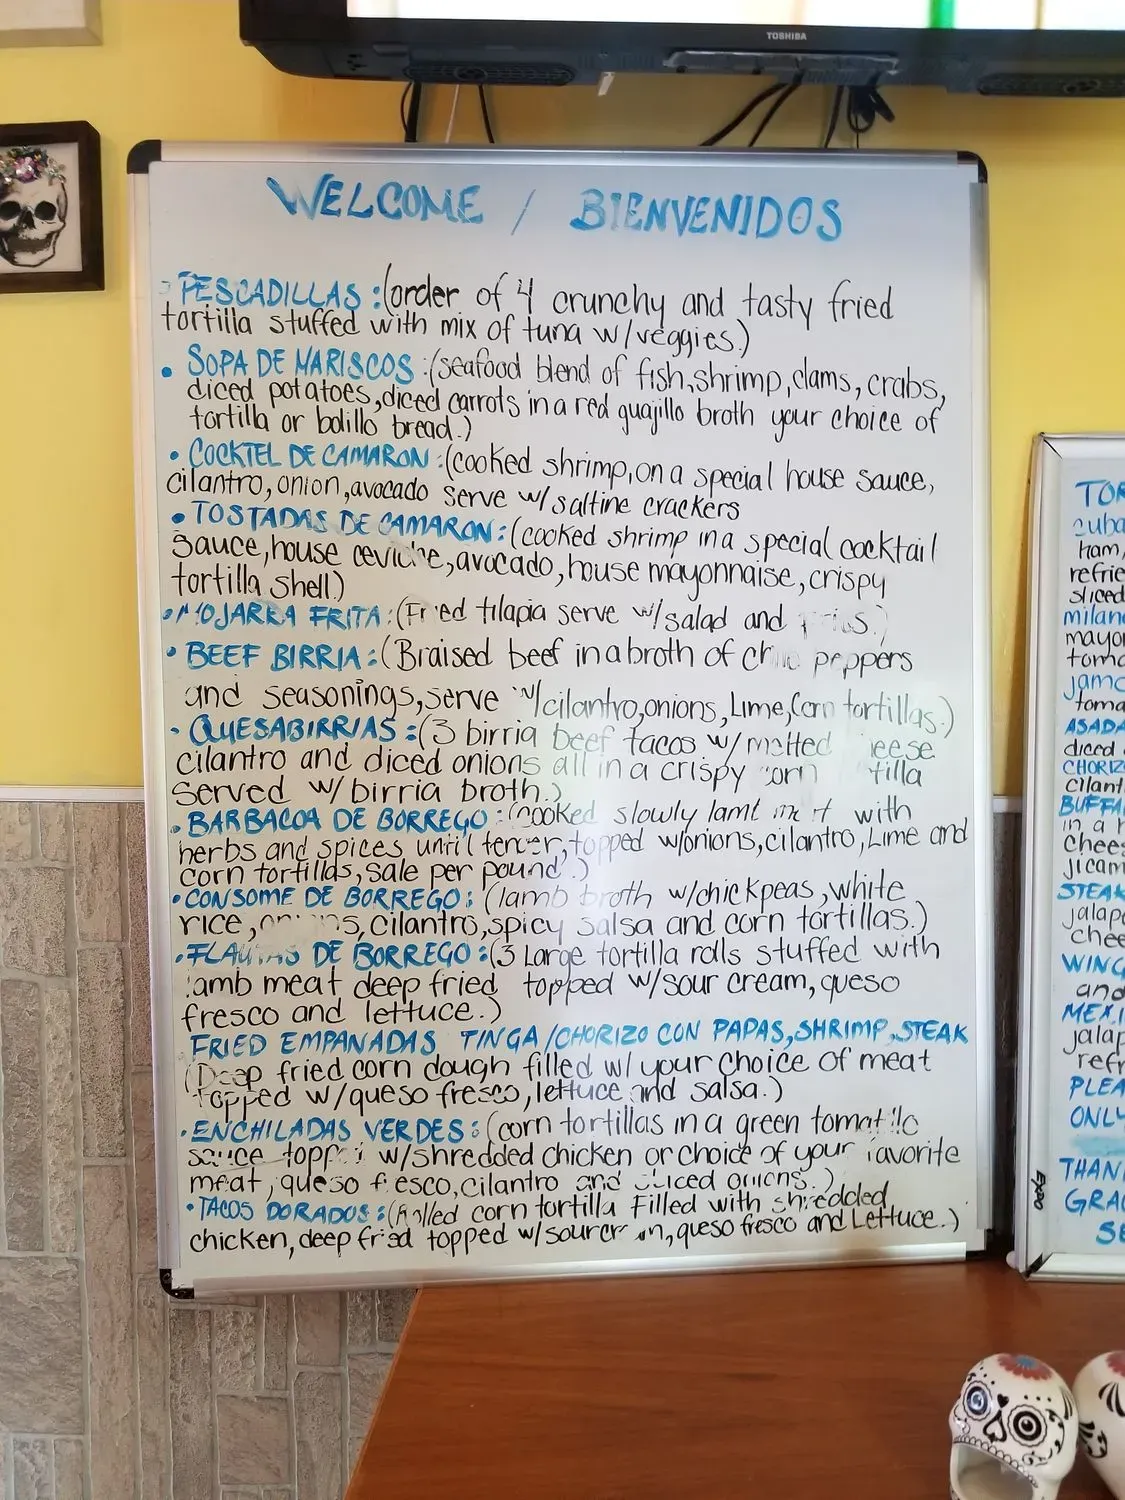 TOSHIBA
WELCOME / BIENVENIDOS
PESCADILLAS :(order of 4 crunchy and tasty fried
tortilla stuffed with mix of tuna w/veggies.)
• SOPA DE MARISCOS :(seafood blend of fish,shrimp,clams, crabs,
diced potatoes,diced carrots in a red guajillo broth your choice of
tortilla or bolillo bread.)
• COCKTEL DE CAMARON :(cooked shrimp,on a special house sauce,
cilantro,onion,avocado serve w/saltine crackers
• TOSTADAS DE CAMARON:(cooked shrimp in a special cocktail
sauce,house ceviche,avocado,house mayonnaise,crispy
tortilla shell)
• MOJARRA FRITA:(Fried tilapia serve w/salad and
• BEEF BIRRIA:(Braised beef in a broth of peppers
and seasonings,serve w/cilantro,onions,Lime,Corn tortillas.)
• QUESABIRRIAS:(3 birria beef tacos w/melted
cilantro and diced onions all in a crispy corn
served w/ birria broth.)
• BARBACOA DE BORREGO:(cooked slowly with
herbs and spices until tender,topped w/onions,cilantro,Lime and
corn tortillas,sale per pound.)
• CONSOME DE BORREGO: (lamb broth w/chickpeas,white
rice, cilantro,spicy salsa and corn tortillas.)
• FLAUTAS DE BORREGO:(3 Large tortilla rolls stuffed with
lamb meat deep fried topped w/sour cream,queso
fresco and lettuce.)
FRIED EMPANADAS TINGA/CHORIZO CON PAPAS,SHRIMP,STEAK
(Deep fried corn dough filled w/ your choice of meat
topped w/queso fresco,lettuce and salsa.)
• ENCHILADAS VERDES:(corn tortillas in a green tomatillo
sauce topped w/shredded chicken or choice of your favorite
meat,queso fresco,cilantro and sliced onions.)
• TACOS DORADOS:(Rolled corn tortilla Filled with shredded
chicken,deep fried topped w/sour cream,queso fresco and Lettuce.)
ham,
ASADA
diced
STEAK
and
ONLY
EXPO